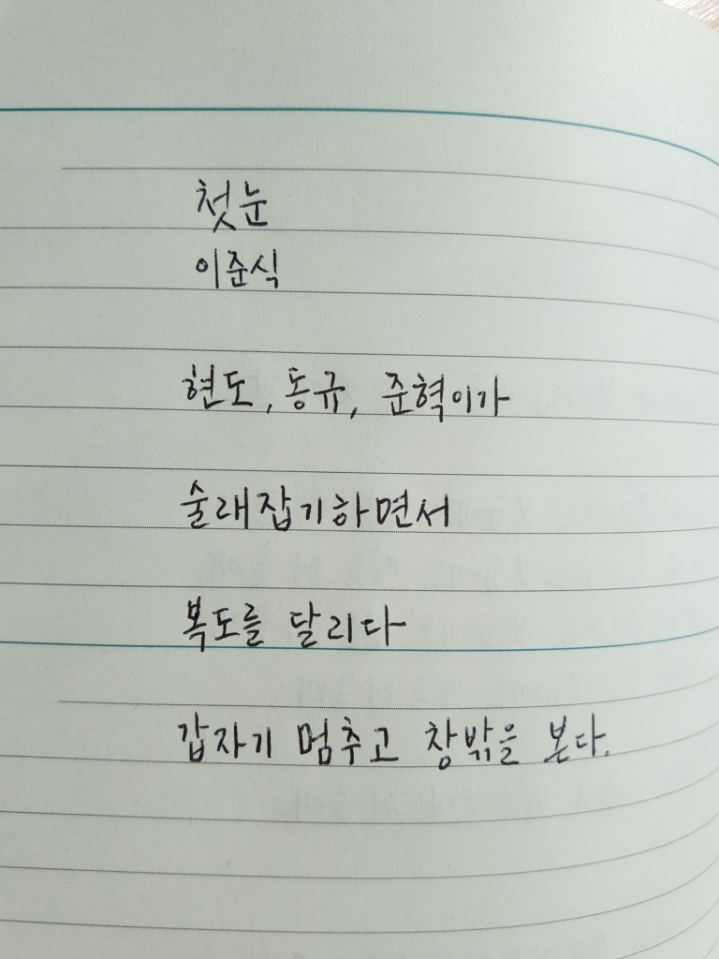 첫눈
이준식
현도, 동규, 준혁이가
술래잡기하면서
복도를 달리다
갑자기 멈추고 창밖을 본다.